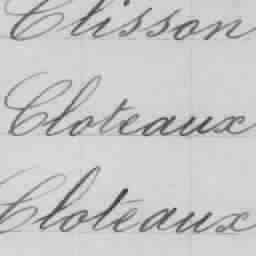 Clisson
Cloteaux
Cloteaux